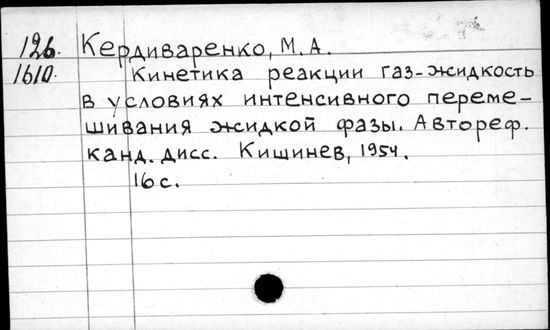 126. Кердиваренко, М. А.
1610. Кинетика реакции газ-жидкость
в условиях интенсивного переме-
шивания жидкой фазы. Автореф.
канд. дисс. Кишинев, 1954.
16 с.